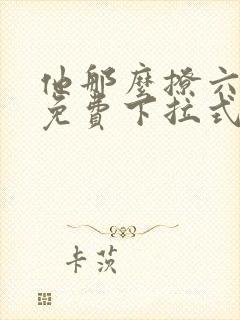 他那麽撩六
免費下拉式
卡茨